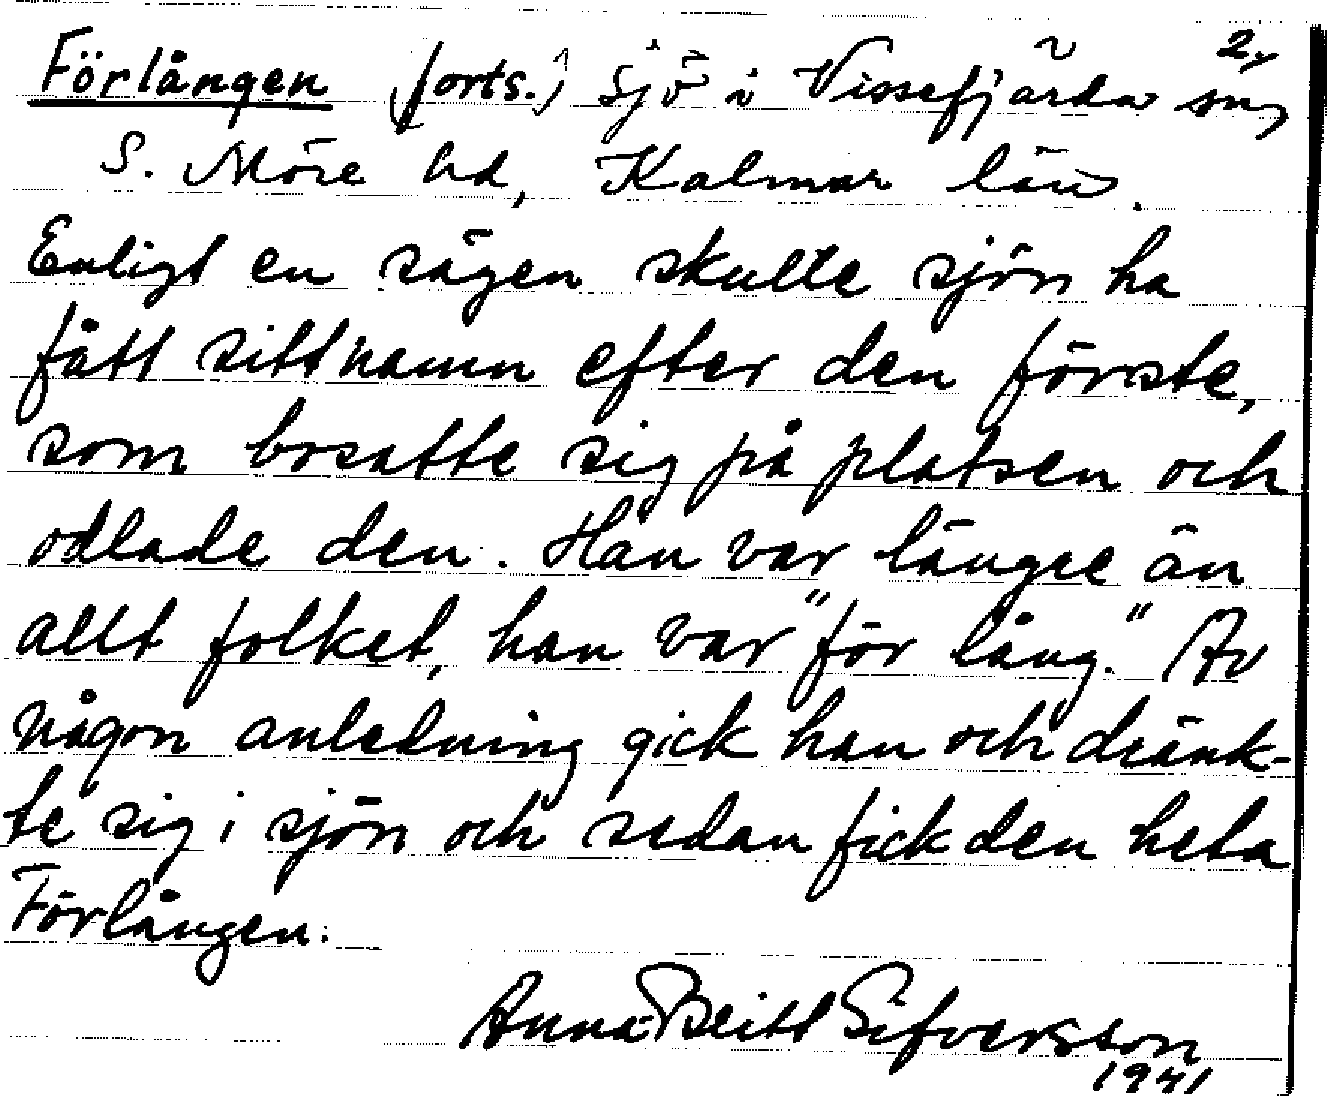 2,
Förlången (forts.) Sjö i Vissefjärda sn,
S. Möre hd, Kalmar län.
Enligt en sägen skulle sjön ha
fått sitt namn efter den förste,
som bosatte sig på platsen och
odlade den. Han var längre än
allt folket, han var "för lång." Av
någon anledning gick han och dränk-
te sig i sjön och sedan fick den heta
Förlången.
Anna-Britt Sifversson
1941